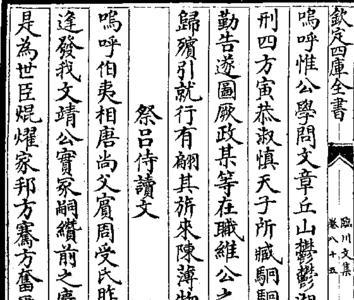 臨川文集
卷八十五
欽定四庫全書
嗚呼惟公學問文章丘山鬱鬱
刑四方寅恭淑慎天子所臧駉駉
勤告遂圖厥政某等在職維公之
歸殯引就行有翩其旂來陳薄物
祭呂侍讀文
嗚呼伯夷相唐尚父賓周受氏
逢發我文靖公實冢嗣纘前之
是為世臣焜燿家邦方騫方奮